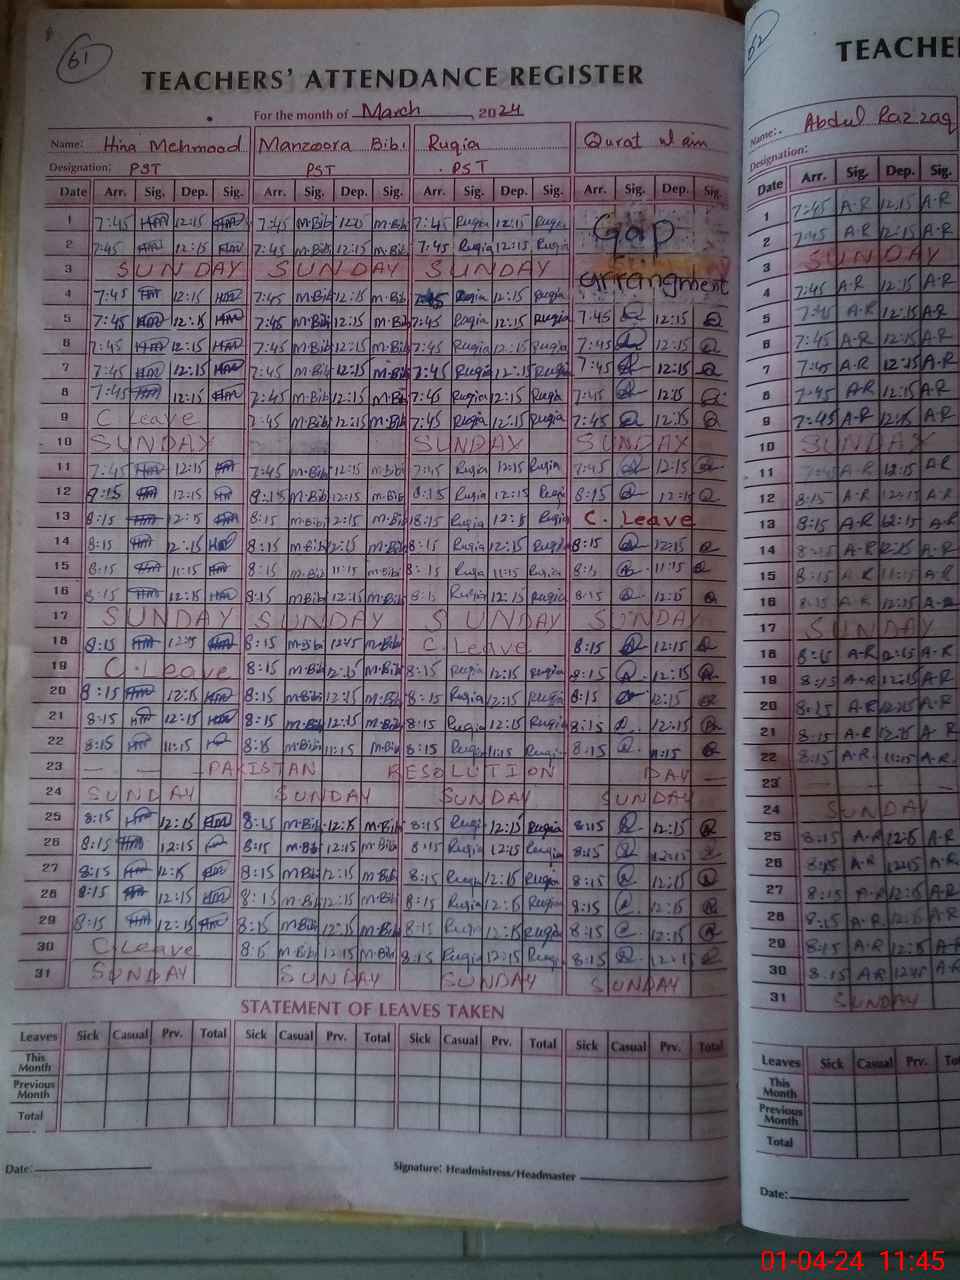 61
TEACHERS' ATTENDANCE REGISTER
For the month of March 2024
Name: Hina Mehmood Manzoora Bibi Ruqia Qurat ul ain
Designation: PST PST PST
Date Arr. Sig. Dep. Sig. Arr. Sig. Dep. Sig. Arr. Sig. Dep. Sig. Arr. Sig. Dep. Sig.
1 7:45 12:15 7:45 M.Bibi M.Bibi 7:45 Ruqia 12:15 Ruqia Gap
2 7:45 12:15 7:45 M.Bibi 12:15 M.Bibi 7:45 Ruqia 12:15 Ruqia
3 SUNDAY SUNDAY SUNDAY arrangment
4 7:45 12:15 7:45 M.Bibi 12:15 M.Bibi 7:45 Ruqia 12:15 Ruqia
5 7:45 12:15 7:45 M.Bibi 12:15 M.Bibi 7:45 Ruqia 12:15 Ruqia 7:45 12:15
6 7:45 12:15 7:45 M.Bibi 12:15 M.Bibi 7:45 Ruqia 12:15 Ruqia 7:45 12:15
7 7:45 12:15 7:45 M.Bibi 12:15 M.Bibi 7:45 Ruqia 12:15 Ruqia 7:45 12:15
8 7:45 12:15 7:45 M.Bibi 12:15 M.Bibi 7:45 Ruqia 12:15 Ruqia 7:45 12:15
9 C Leave 7:45 M.Bibi 12:15 M.Bibi 7:45 Ruqia 12:15 Ruqia 7:45 12:15
10 SUNDAY SUNDAY SUNDAY
11 7:45 12:15 7:45 M.Bibi 12:15 M.Bibi 7:45 Ruqia 12:15 Ruqia 7:45 12:15
12 8:15 12:15 8:15 M.Bibi 12:15 M.Bibi 8:15 Ruqia 12:15 Ruqia 8:15 12:15
13 8:15 12:15 8:15 M.Bibi 12:15 M.Bibi 8:15 Ruqia 12:15 Ruqia C. Leave
14 8:15 12:15 8:15 M.Bibi 12:15 M.Bibi 8:15 Ruqia 12:15 Ruqia 8:15 12:15
15 8:15 11:15 8:15 M.Bibi 11:15 M.Bibi 8:15 Ruqia 11:15 Ruqia 8:15 11:15
16 8:15 12:15 8:15 M.Bibi 12:15 M.Bibi 8:15 Ruqia 12:15 Ruqia 8:15 12:15
17 SUNDAY SUNDAY SUNDAY SUNDAY
18 8:15 12:15 8:15 M.Bibi M.Bibi C. Leave 8:15 12:15
19 C. Leave 8:15 M.Bibi 12:15 M.Bibi 8:15 Ruqia 12:15 Ruqia 8:15 12:15
20 8:15 12:15 8:15 M.Bibi 12:15 M.Bibi 8:15 Ruqia 12:15 Ruqia 8:15 12:15
21 8:15 12:15 8:15 M.Bibi 12:15 M.Bibi 8:15 Ruqia 12:15 Ruqia 8:15 12:15
22 8:15 11:15 8:15 M.Bibi 11:15 M.Bibi 8:15 Ruqia 11:15 Ruqia 8:15 11:15
23 PAKISTAN RESOLUTION DAY
24 SUNDAY SUNDAY SUNDAY SUNDAY
25 8:15 12:15 8:15 M.Bibi 12:15 M.Bibi 8:15 Ruqia 12:15 Ruqia 8:15 12:15
26 8:15 12:15 8:15 M.Bibi 12:15 M.Bibi 8:15 Ruqia 12:15 Ruqia 8:15 12:15
27 8:15 12:15 8:15 M.Bibi 12:15 M.Bibi 8:15 Ruqia 12:15 Ruqia 8:15 12:15
28 8:15 12:15 8:15 M.Bibi 12:15 M.Bibi 8:15 Ruqia 12:15 Ruqia 8:15 12:15
29 8:15 12:15 8:15 M.Bibi 12:15 M.Bibi 8:15 Ruqia 12:15 Ruqia 8:15 12:15
30 C. Leave M.Bibi 12:15 M.Bibi 8:15 Ruqia 12:15 Ruqia 8:15
31 SUNDAY SUNDAY SUNDAY SUNDAY
STATEMENT OF LEAVES TAKEN
Leaves Sick Casual Prv. Total Sick Casual Prv. Total Sick Casual Prv. Total Sick Casual Prv. Total
This Month
Previous Month
Total
Date: Signature: Headmistress/Headmaster
62
TEACHE
Name: Abdul Razzaq
Designation:
Date Arr. Sig. Dep. Sig.
1 7:45 A.R 12:15 A.R
2 7:45 A.R 12:15 A.R
3 SUNDAY
4 7:45 A.R 12:15 A.R
5 7:45 A.R 12:15 A.R
6 7:45 A.R 12:15 A.R
7 7:45 A.R 12:15 A.R
8 7:45 A.R 12:15 A.R
9 7:45 A.R 12:15 A.R
10 SUNDAY
11 7:45 A.R 12:15 A.R
12 8:15 A.R 12:15 A.R
13 8:15 A.R 12:15 A.R
14 8:15 A.R 12:15 A.R
15 8:15 A.R 11:15 A.R
16 8:15 A.R 12:15 A.R
17 SUNDAY
18 8:15 A.R 12:15 A.R
19 8:15 A.R 12:15 A.R
20 8:15 A.R 12:15 A.R
21 8:15 A.R 12:15 A.R
22 8:15 A.R 11:15 A.R
23
24 SUNDAY
25 8:15 A.R 12:15 A.R
26 8:15 A.R 12:15 A.R
27 8:15 A.R 12:15 A.R
28 8:15 A.R 12:15 A.R
29 8:15 A.R 12:15 A.R
30 8:15 A.R A.R
31 SUNDAY
Leaves Sick Casual Prv. To
This Month
Previous Month
Total
Date:
01-04-24 11:45